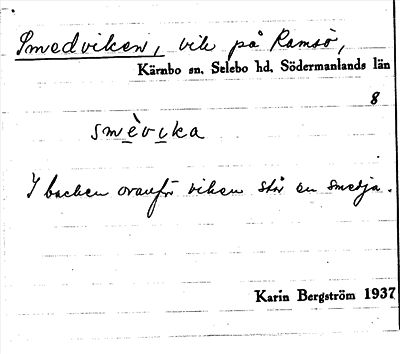 Smedviken, vik på Ramsö,
Kärnbo sn, Selebo hd, Södermanlands län
8
smèvika
I backen ovanför viken står en smedja.
Karin Bergström 1937